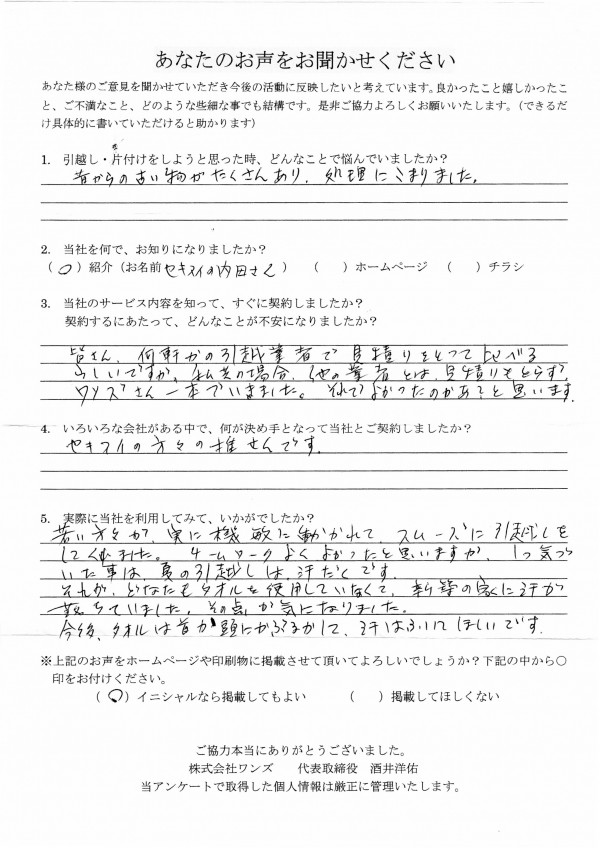 あなたのお声をお聞かせください
あなた様のご意見を聞かせていただき今後の活動に反映したいと考えています。良かったこと嬉しかったこ
と、ご不満なこと、どのような些細な事でも結構です。是非ご協力よろしくお願いいたします。(できるだ
け具体的に書いていただけると助かります)
1. 引越し・片付けをしようと思った時、どんなことで悩んでいましたか?
昔からの古い物がたくさんあり、処理にこまりました。
2. 当社を何で、お知りになりましたか?
(○)紹介(お名前 セキスイの内田さん) ( )ホームページ ( )チラシ
3. 当社のサービス内容を知って、すぐに契約しましたか?
契約するにあたって、どんなことが不安になりましたか?
皆さん、何軒かの引越業者で見積りをとって比べる
らしいですが、私共の場合、他の業者とは、見積りもとらず、
ワンズさん一本でいました。それでよかったのかあと思います
4. いろいろな会社がある中で、何が決め手となって当社とご契約しましたか?
セキスイの方々の推せんです。
5. 実際に当社を利用してみて、いかがでしたか?
若い方々が、実に機敏に動かれて、スムーズに引越しを
してくれました。チームワークよくよかったと思いますが、1つ気づ
いた事は、夏の引越しは、汗だくです。
それが、どなたもタオルを使用していなくて、新築の家に汗が
落ちていました。その点が気になりました。
今後、タオルは首か頭にかぶるかして、汗はふいてほしいです。
※上記のお声をホームページや印刷物に掲載させて頂いてよろしいでしょうか?下記の中から○
印をお付けください。
(○)イニシャルなら掲載してもよい ( )掲載してほしくない
ご協力本当にありがとうございました。
株式会社ワンズ 代表取締役 酒井洋佑
当アンケートで取得した個人情報は厳正に管理いたします。